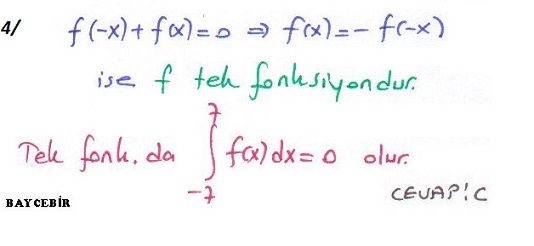 4/ f(-x)+f(x)=0 ⇒ f(x)=-f(-x)
ise f tek fonksiyondur.
Tek fonk. da ∫_{-7}^{7} f(x)dx=0 olur.
CEVAP:C
BAYCEBİR